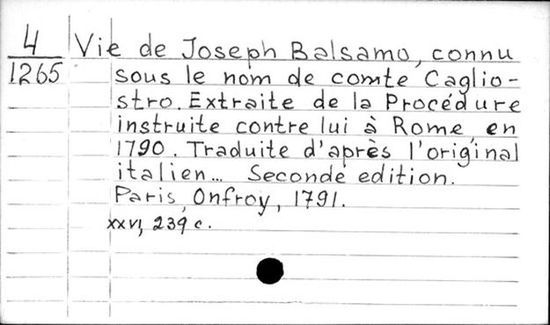 4
1265
Vie de Joseph Balsamo, connu
sous le nom de comte Caglio-
stro. Extraite de la Procédure
instruite contre lui à Rome, en
1790. Traduite d'après l'original
italien... Seconde edition.
Paris, Onfroy, 1791.
xxvi, 239 c.